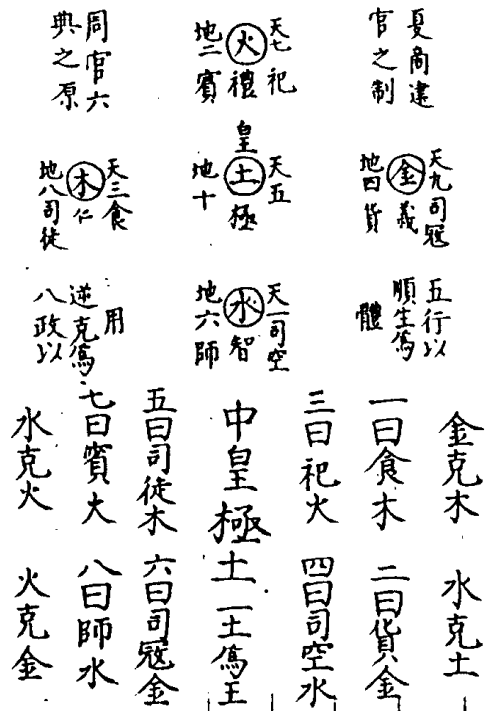 夏商建
官之制
天七祀
火禮
地二賓
周官六
典之原
天九司寇
金義
地四貨
天五
皇土極
地十
天三食
木仁
地八司徒
五行以
順生爲
體
天一司空
水智
地六師
八政以
逆克爲
用
金克木 水克土
一曰食木 二曰貨金
三曰祀火 四曰司空水
中皇極土 一土爲王
五曰司徒木 六曰司寇金
七曰賓大 八曰師水
水克火 火克金